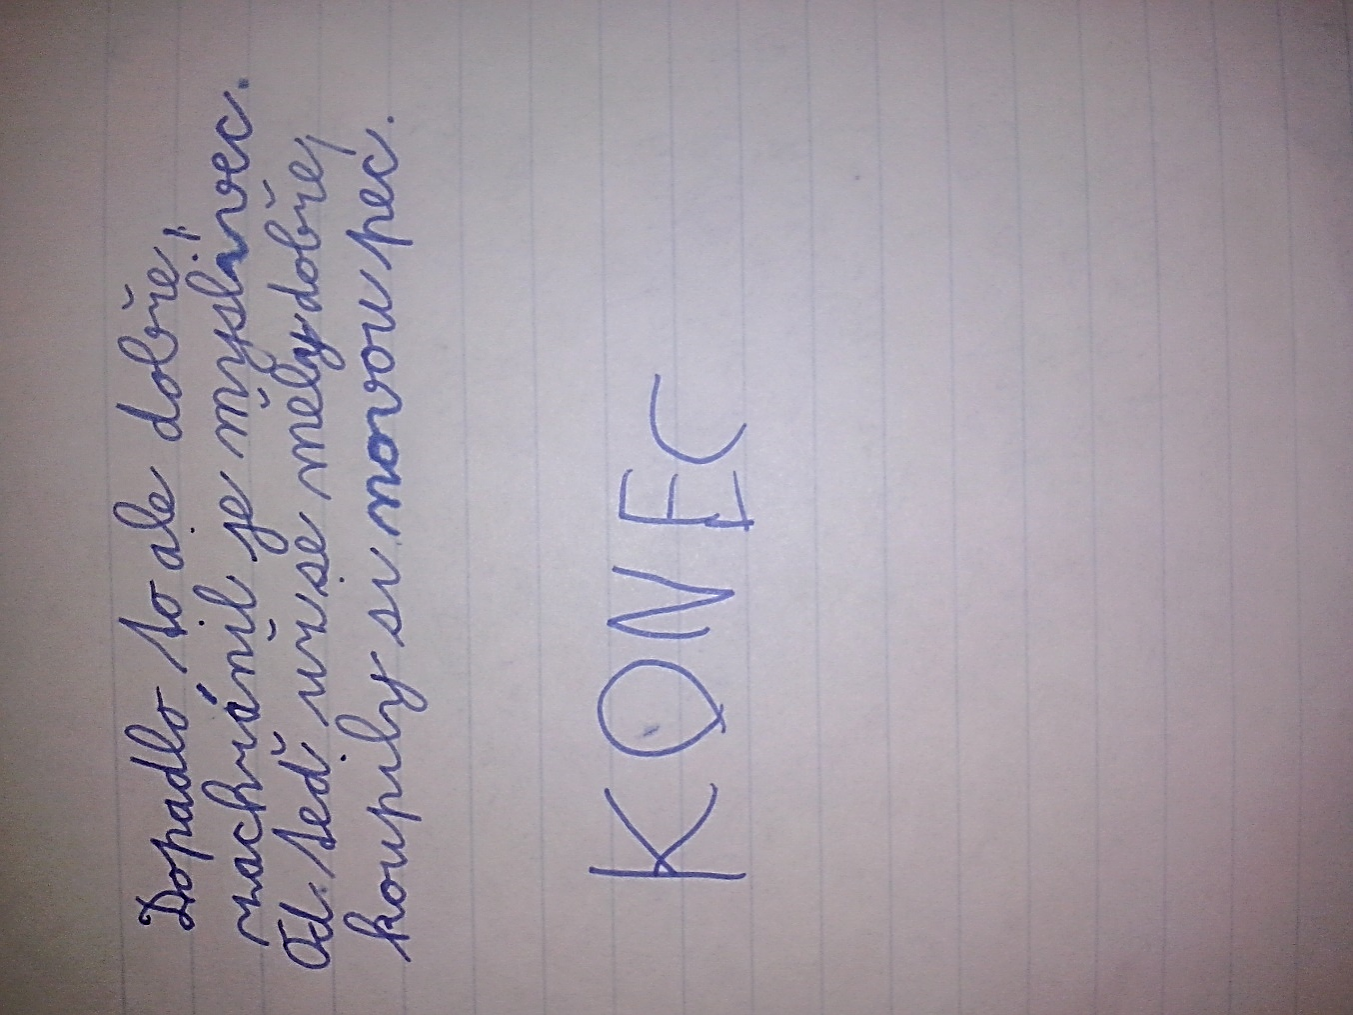 Dopadlo to ale dobře,
zachránil je myslivec.
Od teď už se mely dobře,
koupily si novou pec.
KONEC